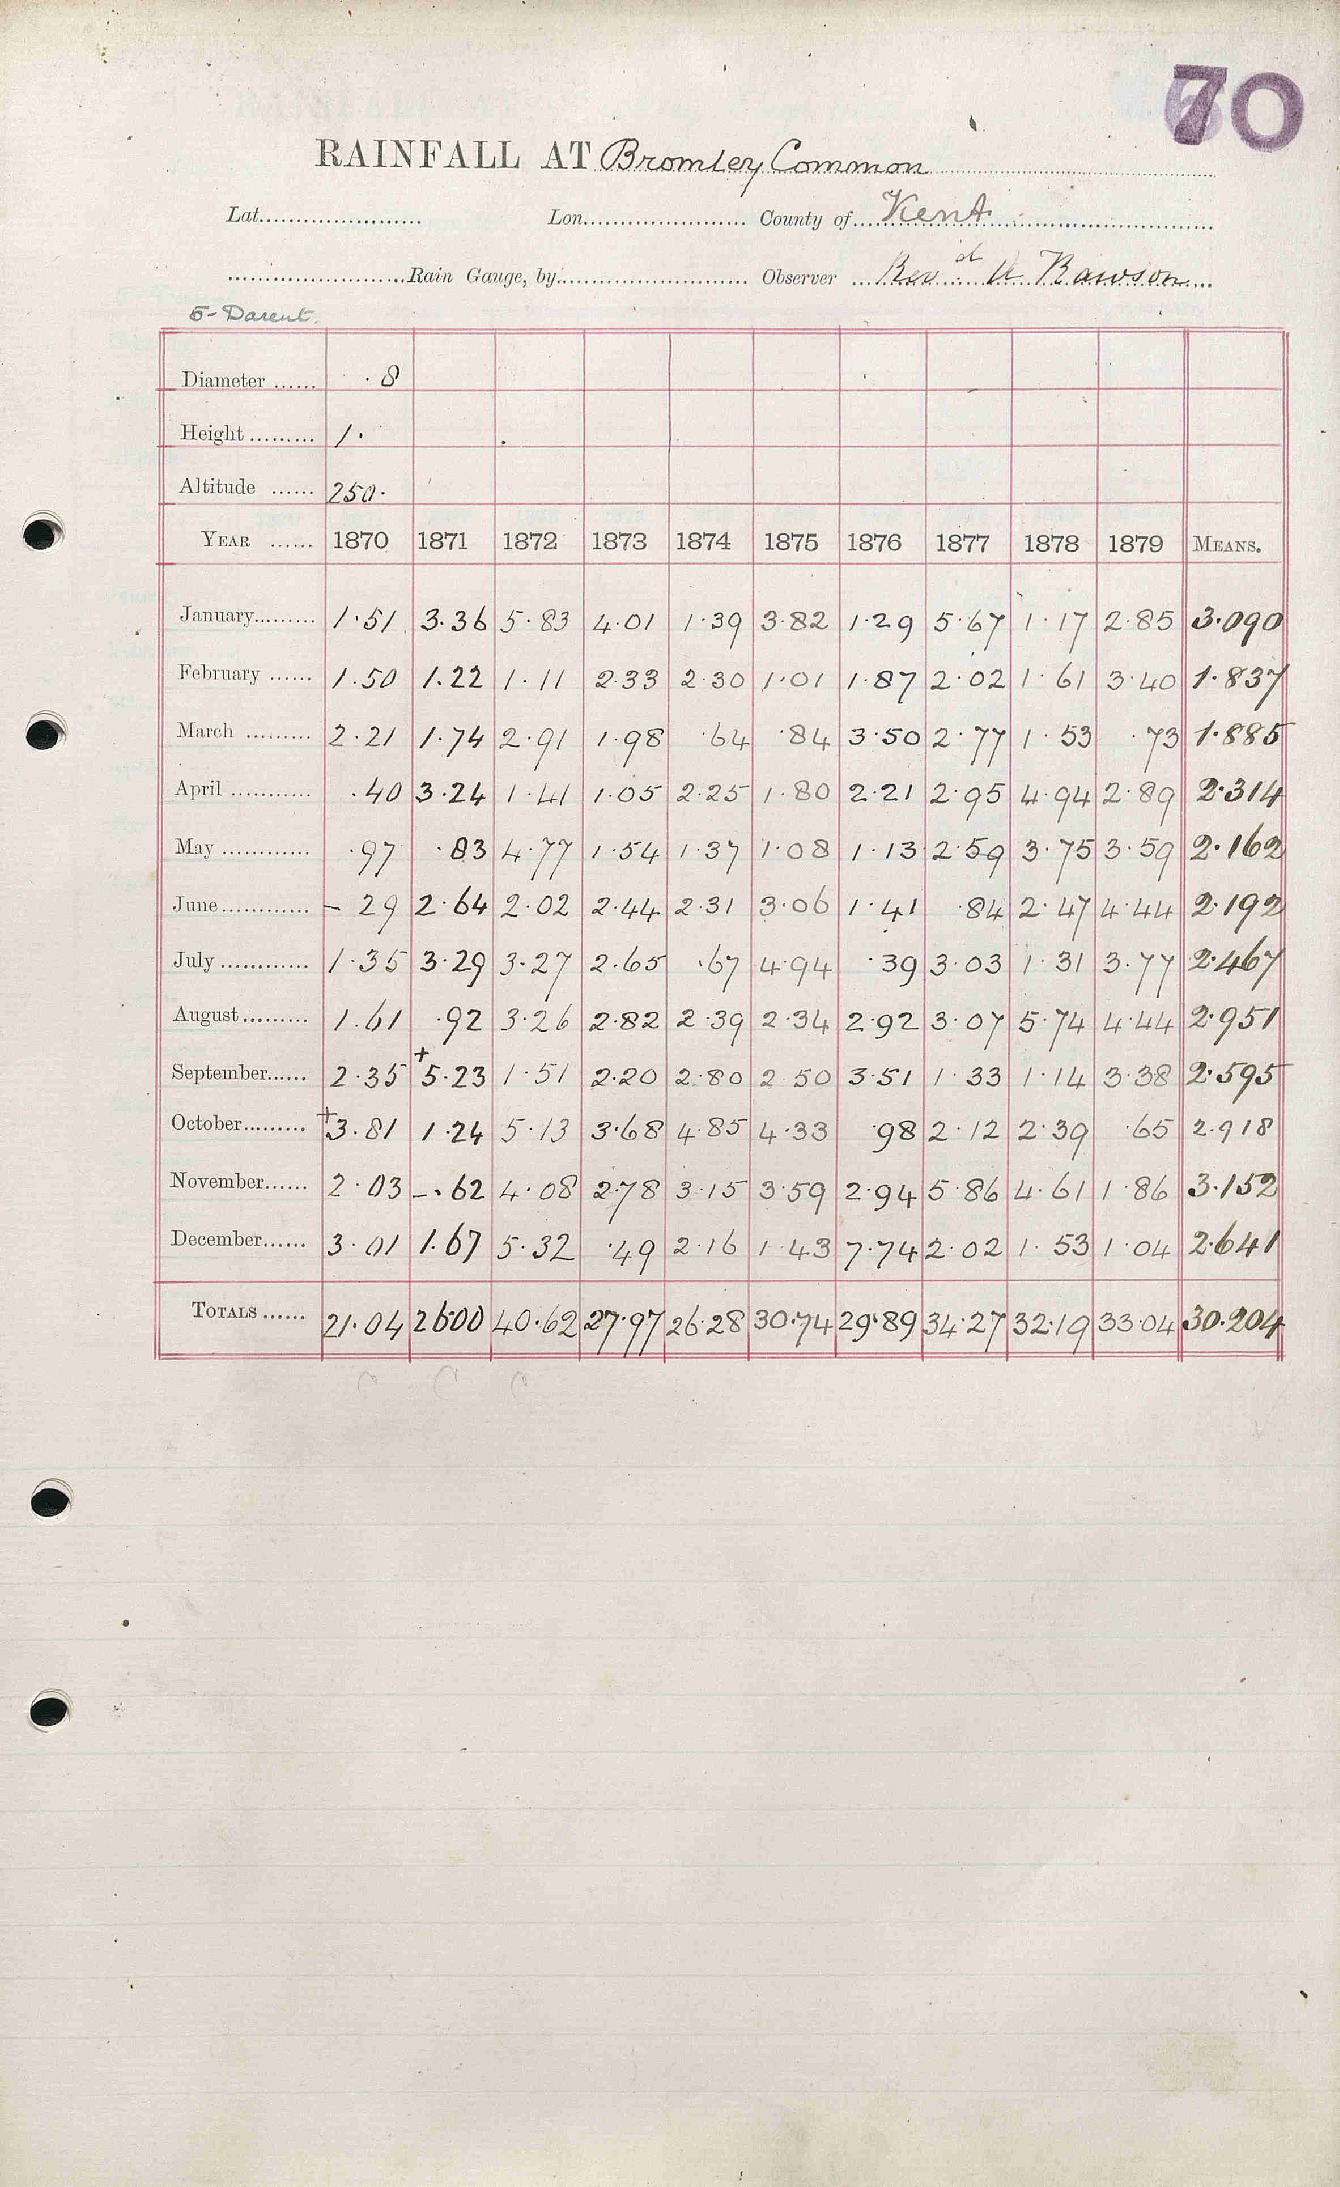 70
RAINFALL AT Bromley Common
Lat...................... Lon....................... County of Kent
......................Rain Gauge, by.......................... Observer Revd. A Rawson
5-Darent.
Diameter ...... .8
Height ......... 1.
Altitude ...... 250.
YEAR ...... 1870 1871 1872 1873 1874 1875 1876 1877 1878 1879 MEANS.
January......... 1.51 3.36 5.83 4.01 1.39 3.82 1.29 5.67 1.17 2.85 3.090
February ...... 1.50 1.22 1.11 2.33 2.30 1.01 1.87 2.02 1.61 3.40 1.837
March ......... 2.21 1.74 2.91 1.98 .64 .84 3.50 2.77 1.53 .73 1.885
April ........... .40 3.24 1.41 1.05 2.25 1.80 2.21 2.95 4.94 2.89 2.314
May ............ .97 .83 4.77 1.54 1.37 1.08 1.13 2.59 3.75 3.59 2.162
June............ - 29 2.64 2.02 2.44 2.31 3.06 1.41 .84 2.47 4.44 2.192
July ............ 1.35 3.29 3.27 2.65 .67 4.94 .39 3.03 1.31 3.77 2.467
August......... 1.61 .92 3.26 2.82 2.39 2.34 2.92 3.07 5.74 4.44 2.951
September...... 2.35 +5.23 1.51 2.20 2.80 2.50 3.51 1.33 1.14 3.38 2.595
October......... +3.81 1.24 5.13 3.68 4.85 4.33 .98 2.12 2.39 .65 2.918
November...... 2.03 -.62 4.08 2.78 3.15 3.59 2.94 5.86 4.61 1.86 3.152
December...... 3.01 1.67 5.32 .49 2.16 1.43 7.74 2.02 1.53 1.04 2.641
TOTALS ...... 21.04 26.00 40.62 27.97 26.28 30.74 29.89 34.27 32.19 33.04 30.204
C C C